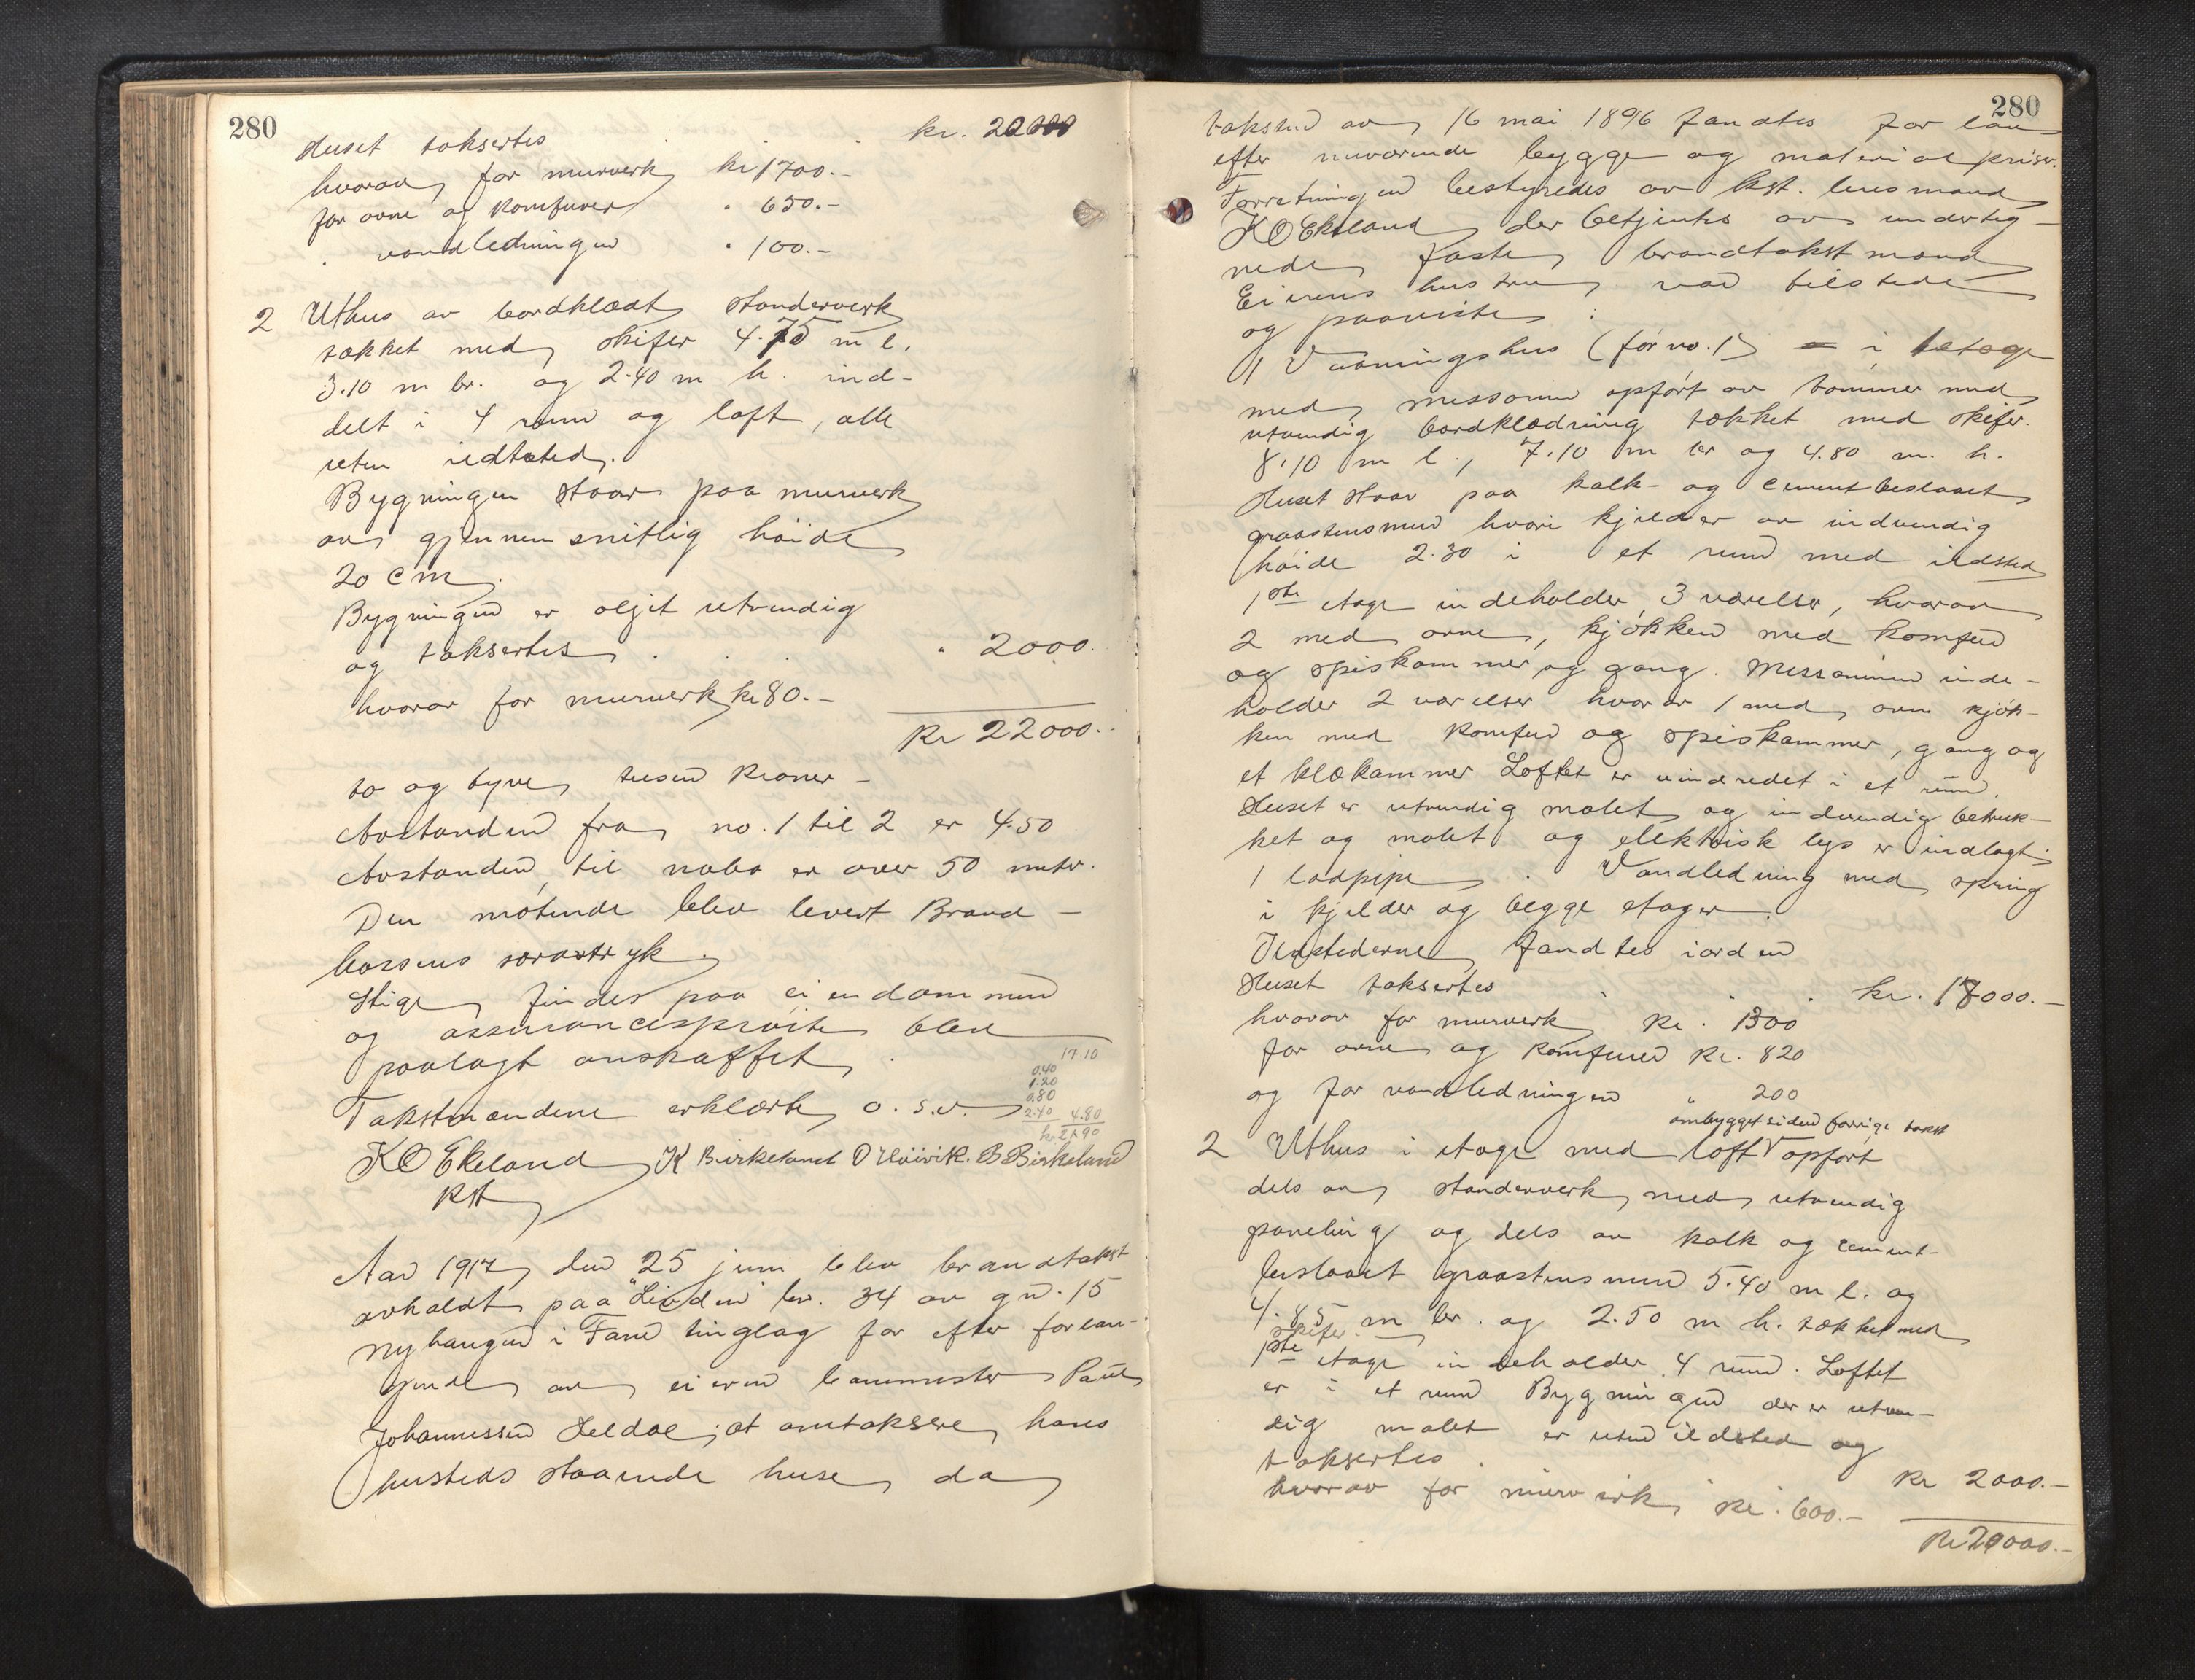 280
Huset taksertes kr. 20000
hvorav for murverk kr 1700.-
for ovne og komfurer " 650.-
" vandledningen " 100.-
2 Uthus av bordklædt standerverk
tækket med skifer 4.75 m l.
3.10 m br. og 2.40 m h. ind-
delt i 4 rum og loft, alle
uten ildsted.
Bygningen staar paa murverk
av gjennemsnitlig høide
20 cm.
Bygningen er oljet utvendig
og taksertes . . . " 2000.
hvorav for murverk kr 80.-
Kr 22000.-
to og tyve tusen Kroner -
Avstanden fra no. 1 til 2 er 4.50
Avstanden til nabo er over 50 meter.
Den møtende blev levert Brand-
kassens særtryk.
Stige findes paa eiendommen
og assurancesprøite blev
paalagt anskaffet.
17.10
0.40
1.20
0.80
2.40 4.80
Takstmændene erklærte o. s. v.
KO Ekeland K Birkeland O Høivik. B Birkeland
Kst
Aar 1917 den 25 juni blev brandtakst
avholdt paa "Linden" br. 34 av gn. 15
Nyhaugen i Fane tinglag for efter forlan-
gende av eieren banemester Paul
Johannessen Heldal, at omtaksere hans
husteds staaende huse, da
280
taksted av 16 mai 1896 fandtes for lav
efter nuværende bygge og materialpriser.
Forretningen bestyredes av kst. lensmand
KO Ekeland der betjentes av underteg-
nede faste brandtakstmænd
Eierens hustru var tilstede
og paaviste :
1 Vaaningshus (før no. 1) i 1 etage
med messanin opført av tømmer med
utvendig bordklædning tækket med skifer.
8.10 m l., 7.10 m br og 4.80 m. h.
Huset staar paa kalk- og cementbeslaaet
graastensmur hvori kjelder av indvendig
høide 2.30 i et rum med ildsted
1ste etage indeholder 3 værelser, hvorav
2 med ovne, kjøkken med komfur
og spiskammer, og gang. Messaninen inde-
holder 2 værelser hvorav 1 med ovn kjøk-
ken med komfur og spiskammer, gang og
et klækammer Loftet er uindredet i et rum.
Huset er utvendig malet og indvendig betruk-
ket og malet og elektrisk lys er indlagt.
1 ladpipe. Vandledning med spring
i kjelder og begge etager.
Ildstederne fandtes i orden
Huset taksertes . . . kr. 18000.-
hvorav for murverk kr. 1300
for ovne og komfurer kr. 820
og for vandledningen " 200
ombygget siden forrige takst
2 Uthus i etage med loft V opført
dels av standerverk med utvendig
paneling og dels av kalk og cement-
beslaaet graastensmur 5.40 m l. og
4.85 m br. og 2.50 m h. tækket med
skifer.
1ste etage indeholder 4 rum. Loftet
er i et rum Bygningen der er utven-
dig malet er uten ildsted og
taksertes . kr 2000.-
hvorav for murverk kr. 600.-
Kr 20000.-